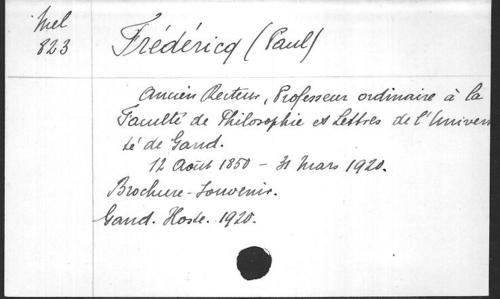 Mel
823
Frédéricq (Paul)
Ancien Recteur, Professeur ordinaire à la
Faculté de Philosophie et Lettres de l'Univer
té de Gand.
12 Août 1850 - 31 Mars 1920.
Brochure-Souvenir.
Gand. Hoste. 1920.